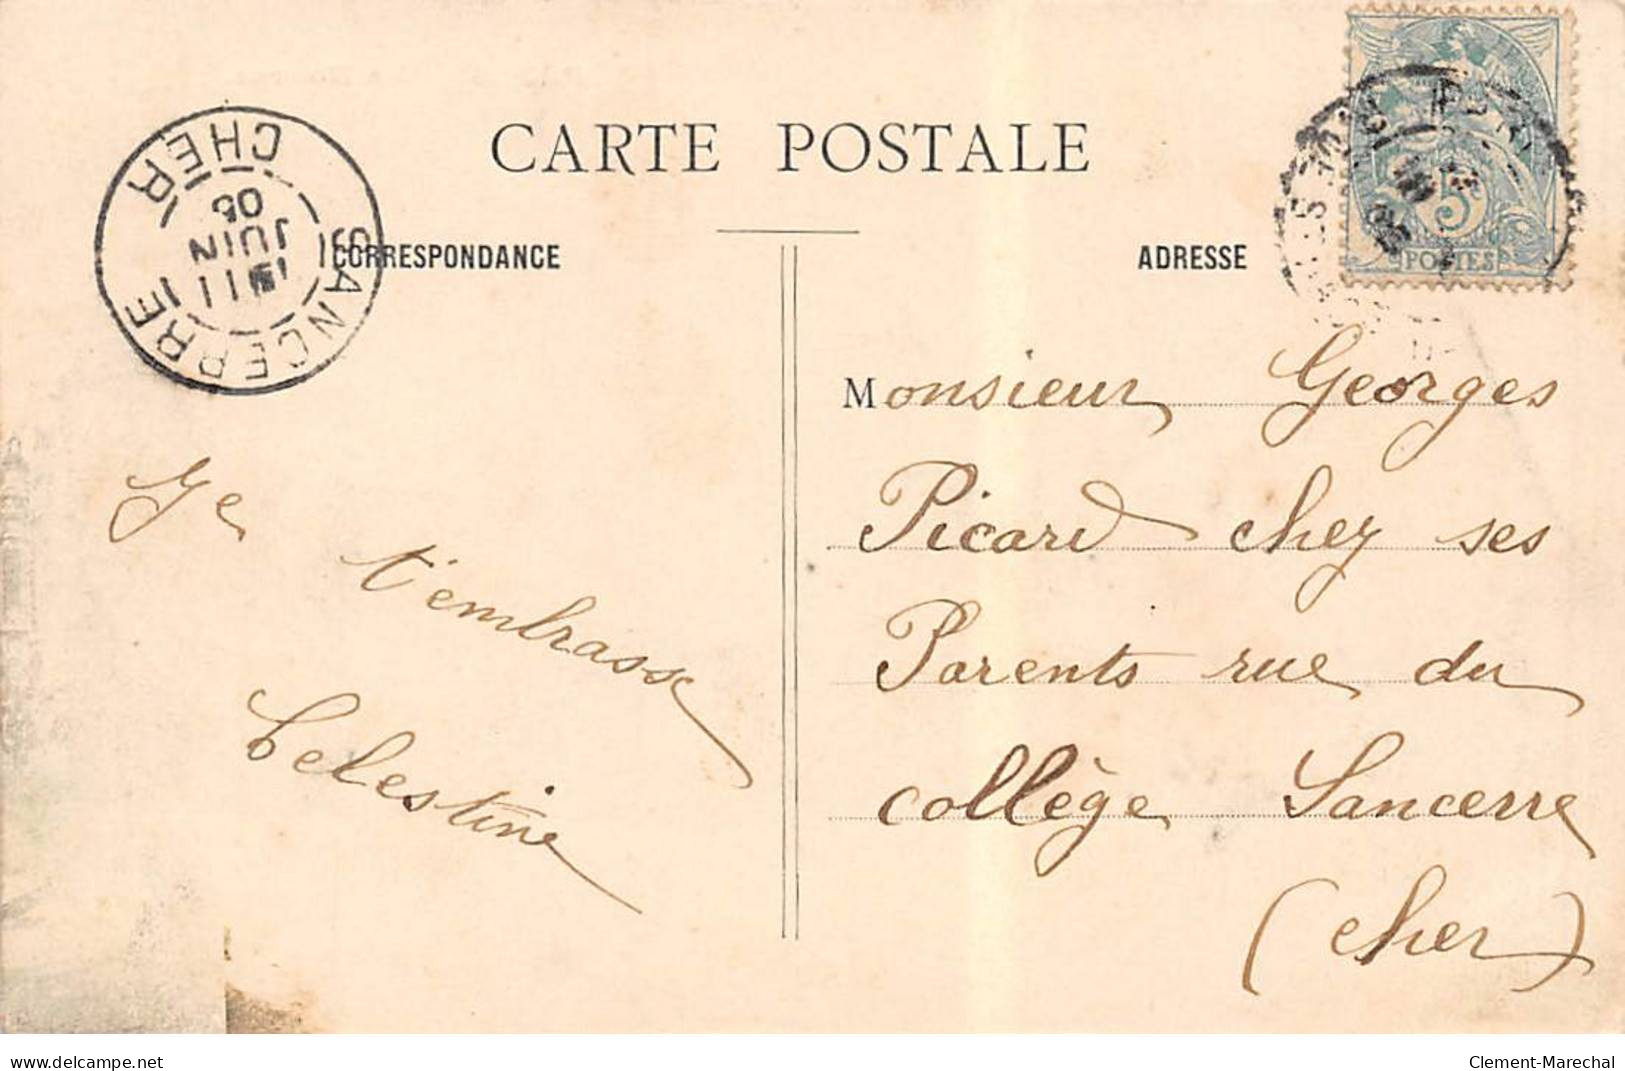 CARTE POSTALE
CORRESPONDANCE
ADRESSE
SANCERRE
JUIN
05
CHER
5
POSTES
Monsieur Georges
Picard chez ses
Parents rue du
collège Sancerre
(cher)
Je
t'embrasse
Celestine
www.delcampe.net
Clement-Marechal